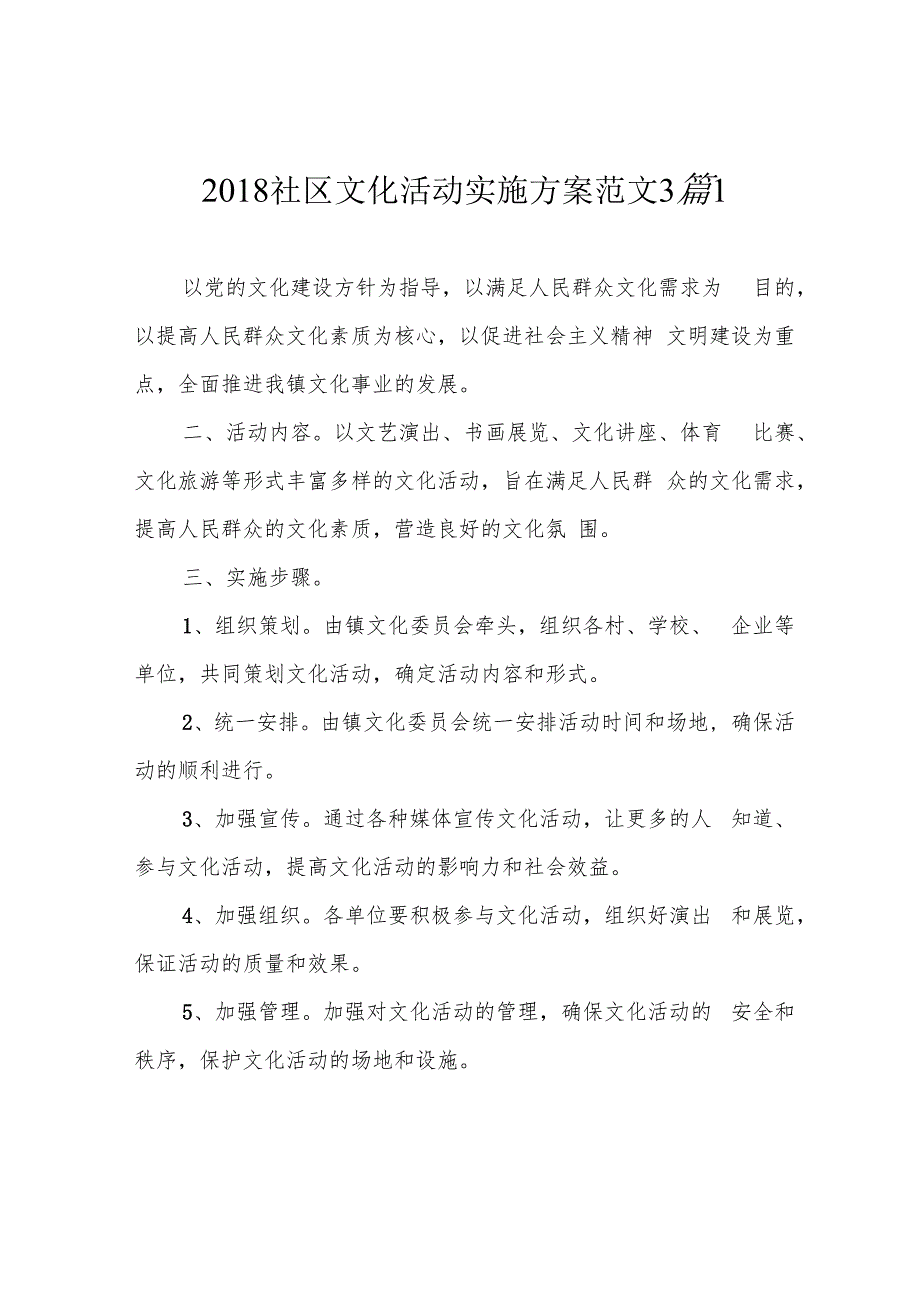 2018社区文化活动实施方案范文3篇1
以党的文化建设方针为指导，以满足人民群众文化需求为 目的，
以提高人民群众文化素质为核心，以促进社会主义精神 文明建设为重
点，全面推进我镇文化事业的发展。
二、活动内容。以文艺演出、书画展览、文化讲座、体育 比赛、
文化旅游等形式丰富多样的文化活动，旨在满足人民群 众的文化需求，
提高人民群众的文化素质，营造良好的文化氛 围。
三、实施步骤。
1、组织策划。由镇文化委员会牵头，组织各村、学校、 企业等
单位，共同策划文化活动，确定活动内容和形式。
2、统一安排。由镇文化委员会统一安排活动时间和场地，确保活
动的顺利进行。
3、加强宣传。通过各种媒体宣传文化活动，让更多的人 知道、
参与文化活动，提高文化活动的影响力和社会效益。
4、加强组织。各单位要积极参与文化活动，组织好演出 和展览，
保证活动的质量和效果。
5、加强管理。加强对文化活动的管理，确保文化活动的 安全和
秩序，保护文化活动的场地和设施。